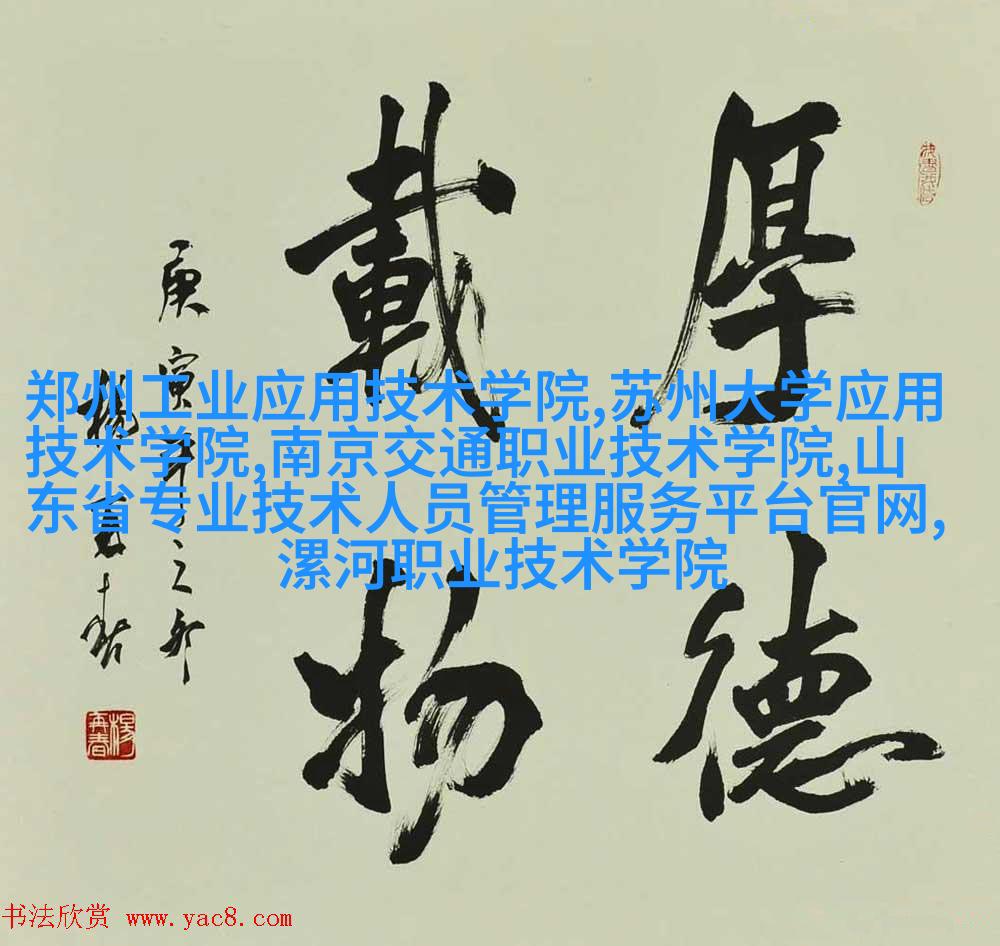 厚德
載物
庚寅年之秋
楊再春
楊再春
郑州工业应用技术学院,苏州大学应用
技术学院,南京交通职业技术学院,山
东省专业技术人员管理服务平台官网,
漯河职业技术学院
书法欣赏 www.yac8.com